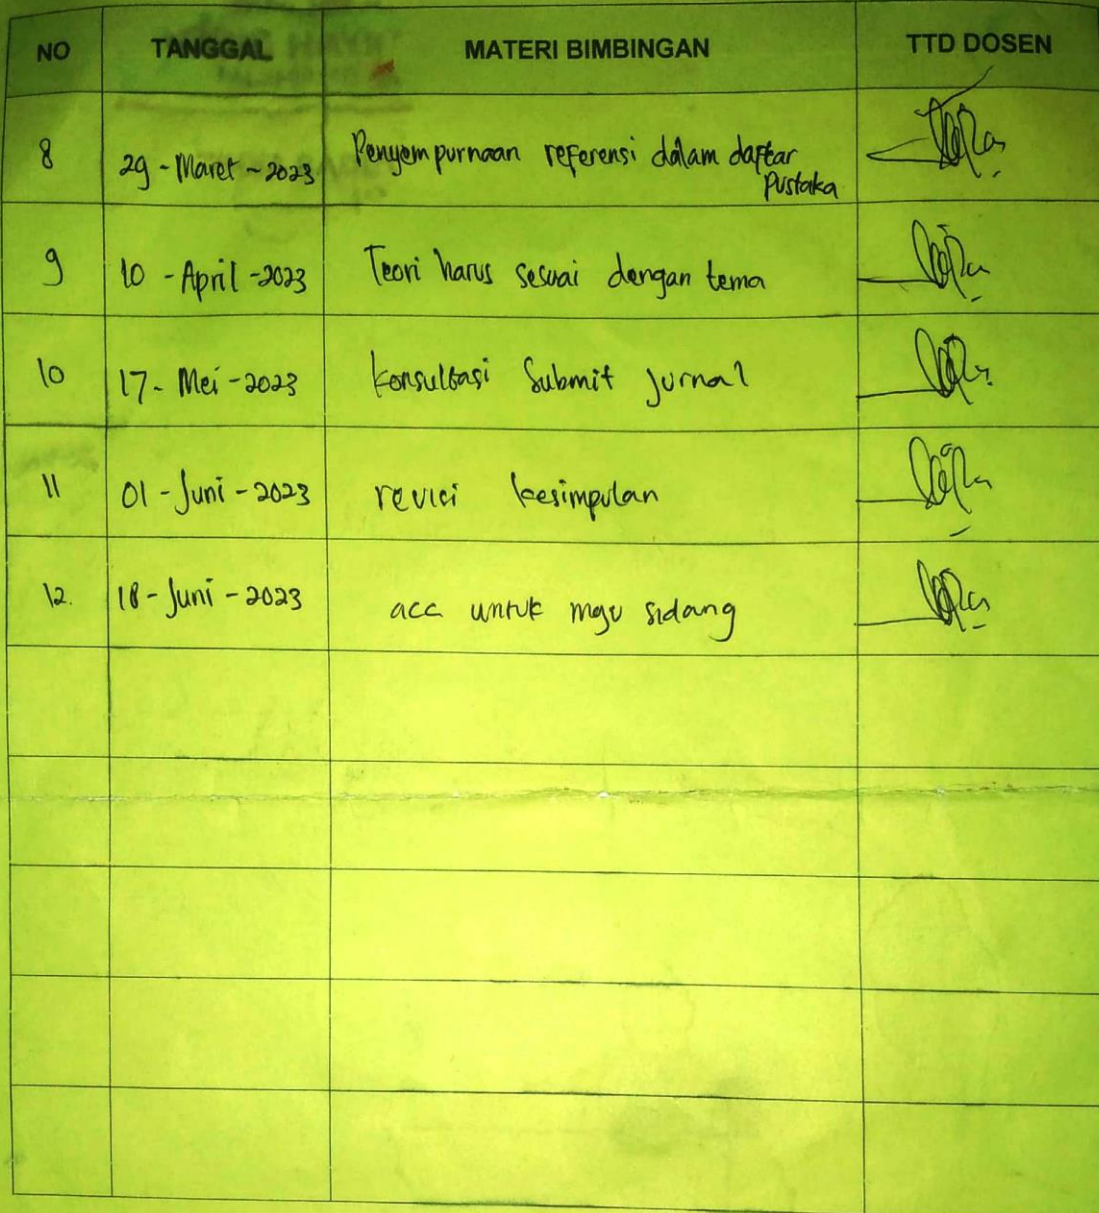 NO TANGGAL MATERI BIMBINGAN TTD DOSEN
8 29 - Maret - 2023 Penyempurnaan referensi dalam daftar
Pustaka
9 10 - April - 2023 Teori harus sesuai dengan tema
10 17 - Mei - 2023 Konsultasi Submit Jurnal
11 01 - Juni - 2023 revici kesimpulan
12. 18 - Juni - 2023 acc untuk mgu sidang